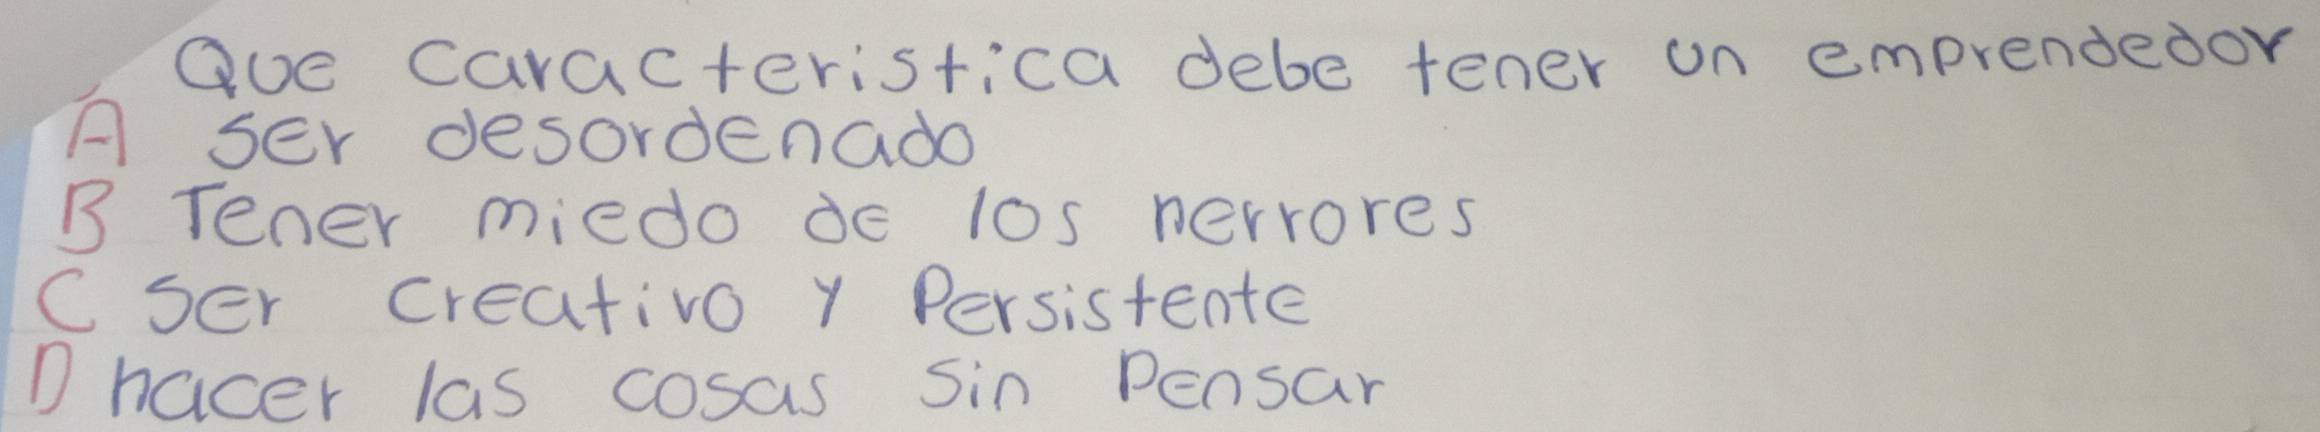 Que caracteristica debe tener un emprendedor
A ser desordenado
B Tener miedo de los nerrores
C ser creativo y Persistente
D hacer las cosas sin Pensar